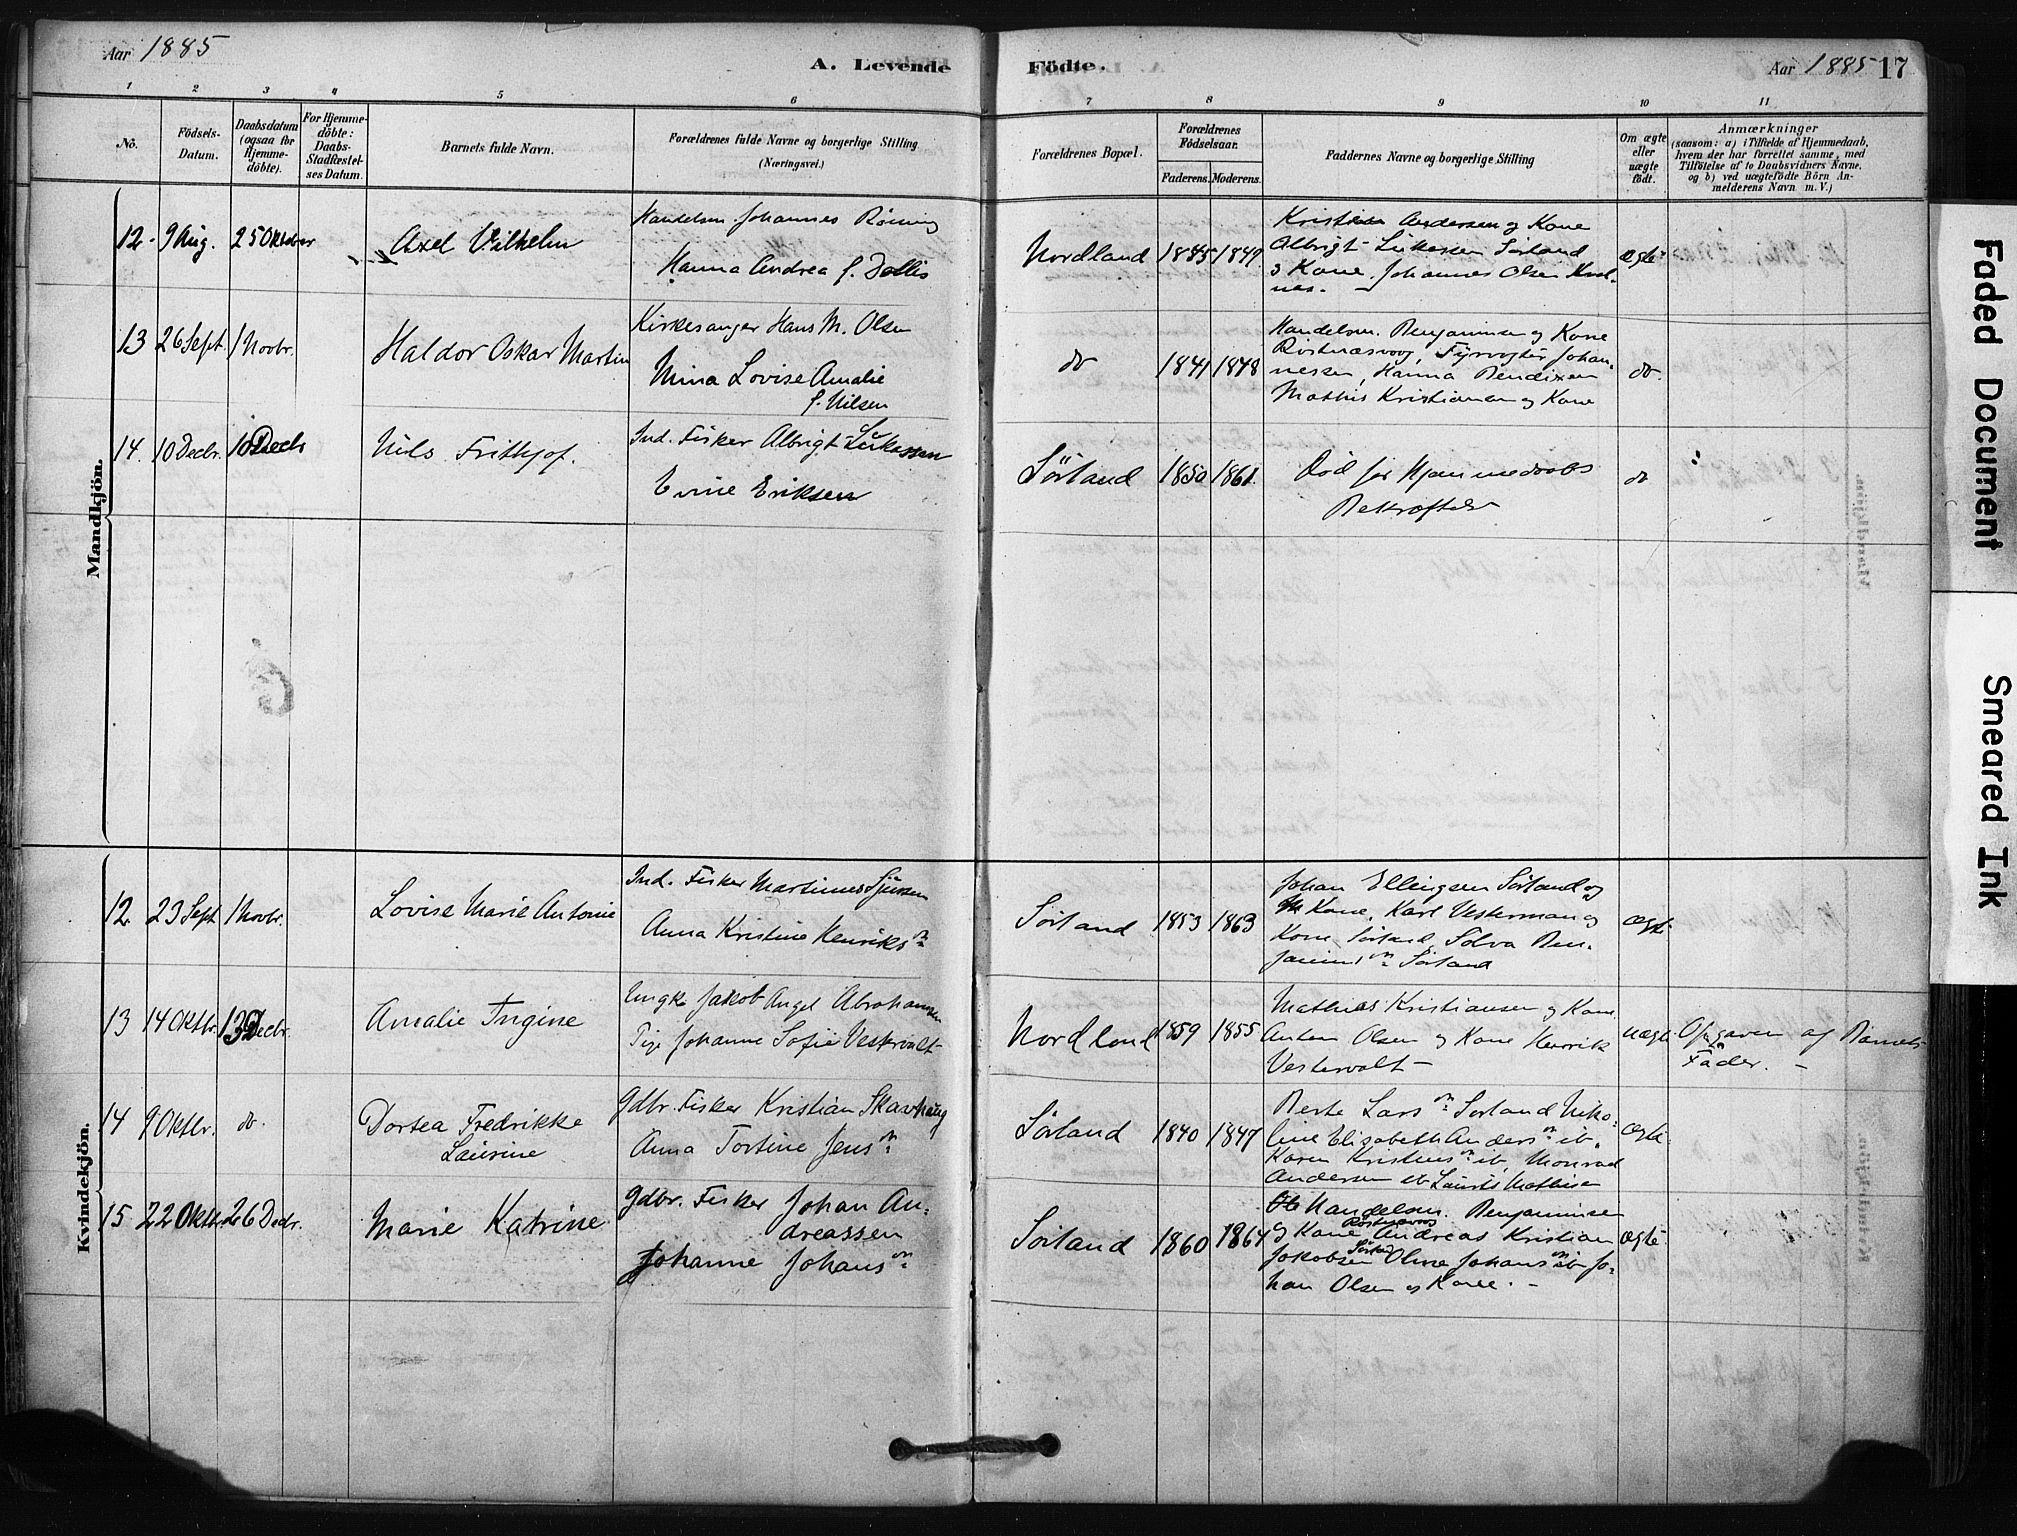 Aar 1885
A. Levende
Födte.
Aar 1885 17
1 2 3 4 5 6 7 8 9 10 11
No.
Födsels-
Datum.
Daabsdatum
(ogsaa for
Hjemme-
döbte).
For Hjemme-
döbte:
Daabs-
Stadfæstel-
ses Datum.
Barnets fulde Navn.
Forældrenes fulde Navne og borgerlige Stilling
(Næringsvei.)
Forældrenes Bopæl.
Forældrenes
Födselsaar.
Faderens. Moderens.
Faddernes Navne og borgerlige Stilling
Om ægte
eller
uægte
födt.
Anmærkninger
(saasom: a) i Tilfælde af Hjemmedaab,
hvem der har forrettet samme, med
Tilföielse af to Daabsvidners Navne,
og b) ved uægtefödte Börn An-
melderens Navn m. V.)
Mandkjön.
12. 9 Aug. 25 Oktober
Axel Vilhelm
Handelsm. Johannes Rönning
Hanna Andrea f. Dollis
Nordland 1845 1849
Kristian Andersen og Kone
Albrigt Lukassen Sörland
og Kone. Johannes Olsen
ægte
13 26 Sept. 1 Novbr.
Haldor Oskar Martin
Kirkesanger Hans M. Olsen
Mina Lovise Amalie
f. Nilsen
do 1841 1848
Handelsm. Benjaminsen og Kone
Röstnæsvaag, Fyrvogter Johan-
nessen, Hanna Bendixen
Mathis Kristiansen og Kone
do.
14. 10 Decbr. 10 Decb
Nils Frithjof.
Ind. Fisker Albrigt Lukassen
Evine Eriksen
Sörland 1850 1861.
Död för Hjemmedaabs
Bekræftelse
do
Kvindekjön.
12. 23 Sept 1 Novbr.
Lovise Marie Antonie
Ind. Fisker Martinus
Anna Kristine Henriksn
Sörland 1853 1863
Johan Ellingsen Sörland og
Kone, Karl Vesterman og
Kone Sörland, Solva Ben-
jaminsn Sörland
ægte
13 14 Oktbr. 13 Decbr.
Amalie Ingine
Ungk. Jakob Angel Abrahamsen
Pige Johanne Sofie Vestervalt
Nordland 1859 1855
Mathias Kristiansen og Kone.
Anton Olsen og Kone Henrik
Vestervalt
uægte
Opgaven af Barnets
Fader. -
14 9 Oktbr. do.
Dortea Fredrikke
Laurine
Gdbr. Fisker Kristian Skavhaug
Anna Tortine Jensn
Sörland 1840 1847
Berte Larsn Sörland Niko-
line Elisabeth Andersn ib.
Karen Kristensn ib, Monrad
Andersen ib Laurits Mathisen
ægte
15 22 Oktbr. 26 Decbr.
Marie Katrine
Gdbr. Fisker Johan An-
dreassen
Johanne Johansn
Sörland 1860 1864
Handelsm. Benjaminsen
og Kone Röstnæsvaag Andreas Kristian
Jakobsen Oline Johansn ib Jo-
han Olsen og Kone. -
ægte
Faded Document
Smeared Ink